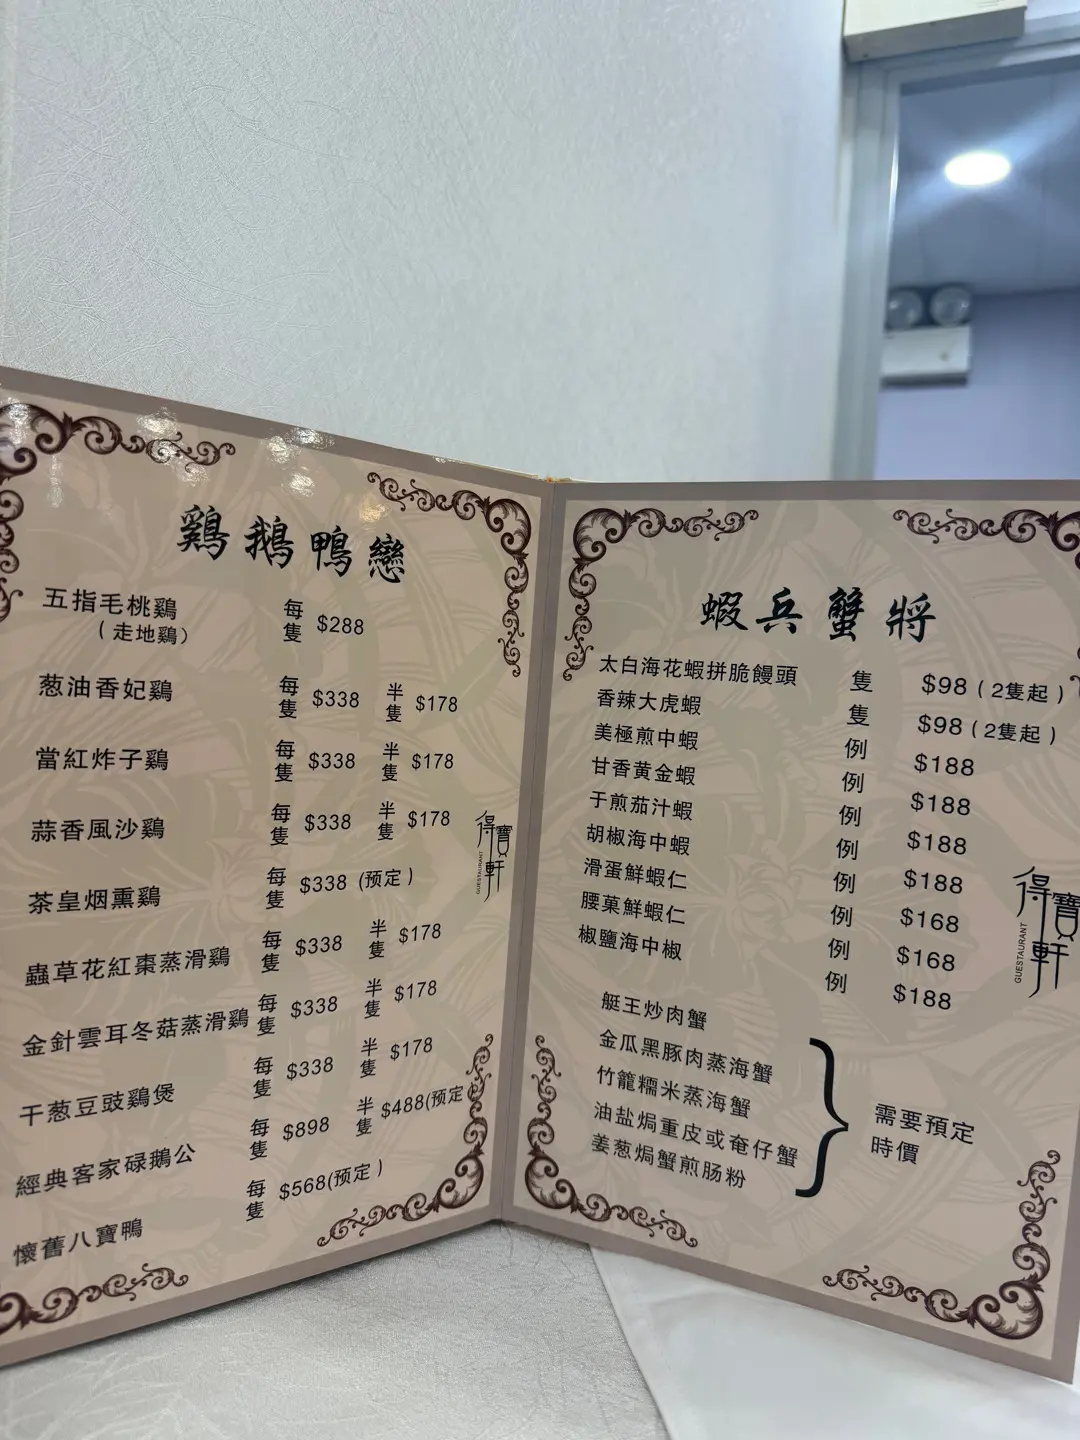 鷄鵝鴨戀
五指毛桃鷄 每隻 $288
(走地鷄)
葱油香妃鷄 每隻 $338 半隻 $178
當紅炸子鷄 每隻 $338 半隻 $178
蒜香風沙鷄 每隻 $338 半隻 $178
茶皇烟熏鷄 每隻 $338 (预定)
蟲草花紅棗蒸滑鷄 每隻 $338 半隻 $178
金針雲耳冬菇蒸滑鷄 每隻 $338 半隻 $178
干葱豆豉鷄煲 每隻 $338 半隻 $178
經典客家碌鵝公 每隻 $898 半隻 $488(预定)
懷舊八寶鴨 每隻 $568(预定)
得寶軒
GUESTAURANT
蝦兵蟹將
太白海花蝦拼脆饅頭 隻 $98 (2隻起)
香辣大虎蝦 隻 $98 (2隻起)
美極煎中蝦 例 $188
甘香黄金蝦 例 $188
于煎茄汁蝦 例 $188
胡椒海中蝦 例 $188
滑蛋鮮蝦仁 例 $168
腰菓鮮蝦仁 例 $168
椒鹽海中椒 例 $188
例
艇王炒肉蟹
金瓜黑豚肉蒸海蟹
竹籠糯米蒸海蟹
油盐焗重皮或奄仔蟹
姜葱焗蟹煎肠粉
需要預定
時價
得寶軒
GUESTAURANT